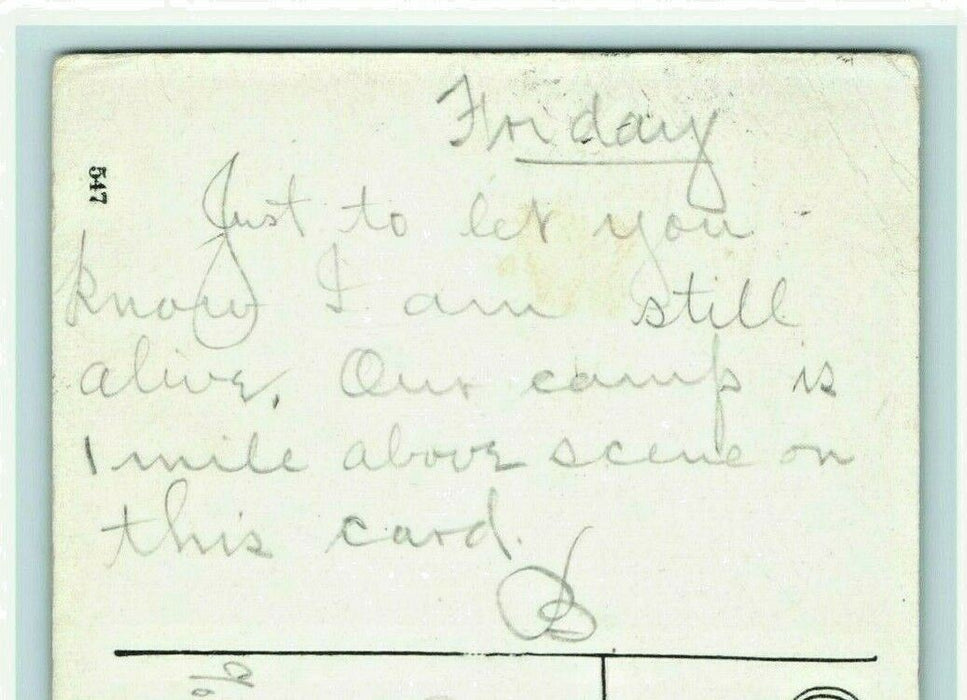 Friday
547
Just to let you
know I am still
alive. Our camp is
1 mile above scene on
this card.